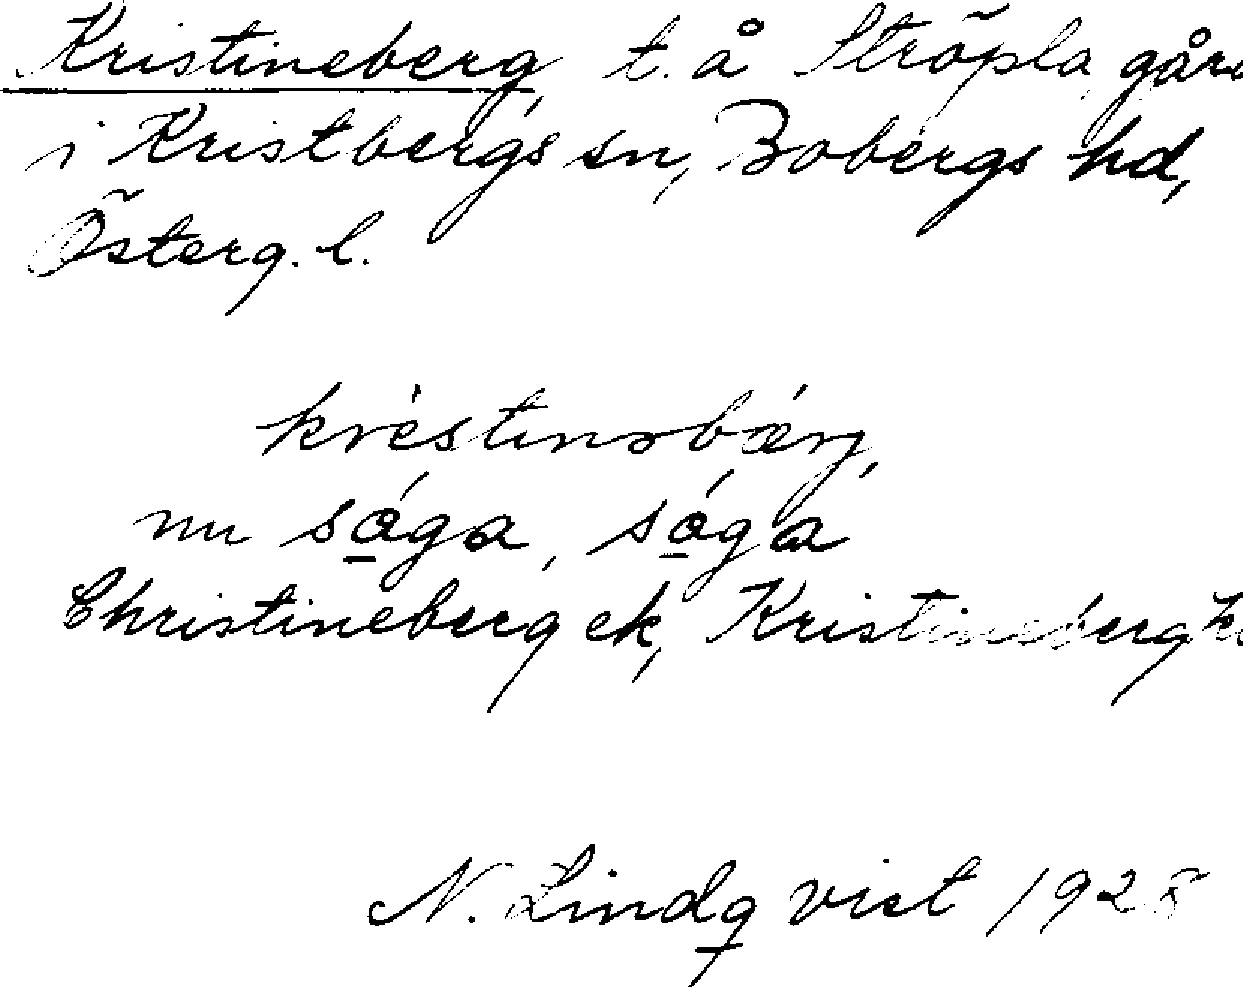 Kristineberg, t. å Ströpla går
i Kristbergs sn, Bobergs hd,
Österg. l.
krèstinəbǽrj,
nu sǫ́ga, sǫ́ga
Christineberg ek, Kristineberg k
N. Lindqvist 1928